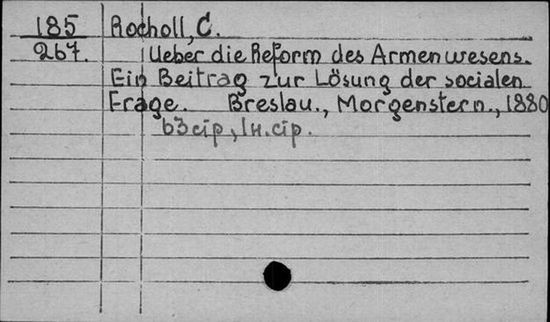 185 Rocholl, C.
267. Ueber die Reform des Armenwesens.
Ein Beitrag zur Lösung der socialen
Frage. Breslau., Morgenstern., 1880
63 cip, 1н.cip.